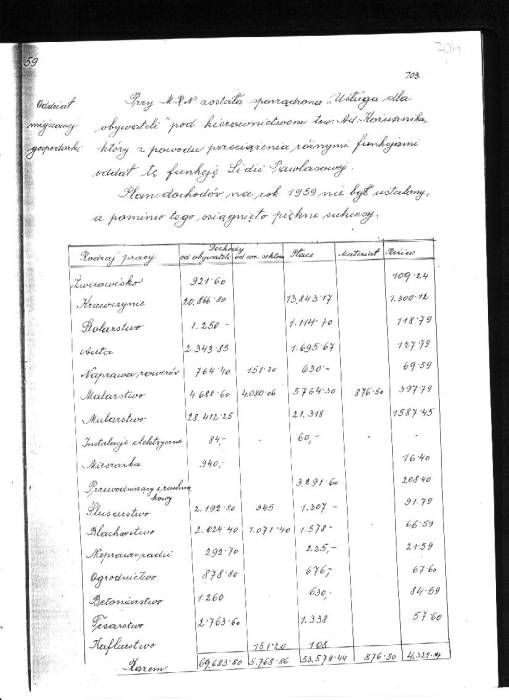 704.
59
703.
Oddział
miejscowy
gospodarki
Przy M.R.N została sporządzona „Usługa dla
obywateli" pod kierownictwem tow. Ad.
który z powodu przeciążenia różnymi funkcjami
oddał tę funkcję Lidii Pawlasowej.
Plan dochodów na rok 1959 nie był ustalony,
a pomimo tego osiągnięto piękne sukcesy.
Dochody
Rodzaj pracy od obywateli od soc. sektoru Płace Materiał Reżies
Żwirowisko 921·60 109·24
Krawczynie 20.866·80 13,843·17 1.300·12
Stolarstwo 1.250 - 1.114·70 118·79
Auta 2.343·85 1.695·67 127·79
Naprawa rowerów 764·40 151·20 630·- 69·59
Malarstwo 4.688·60 4,080·06 5764·30 876·50 397·79
Mularstwo 28.412·25 21,318 1587·45
Instalacje elektryczne 84,- - 60,- - -
Mieszarka 940,- 16·40
3,291·60 208·40
Ślusarstwo 2.192·80 345 1.307 - 91·79
Blacharstwo 2.024·40 1.071·40 1.578 - 66·59
Naprawa radii 292·70 225,- 21·59
Ogrodnictwo 878·80 676,- 67·60
Betoniarstwo 1.260 630,- 84·59
Tesarstwo 2.763·60 1.338 57·60
Kaflarstwo 151·20 108
Razem 69,683·80 5,768·86 53,579·44 876·50